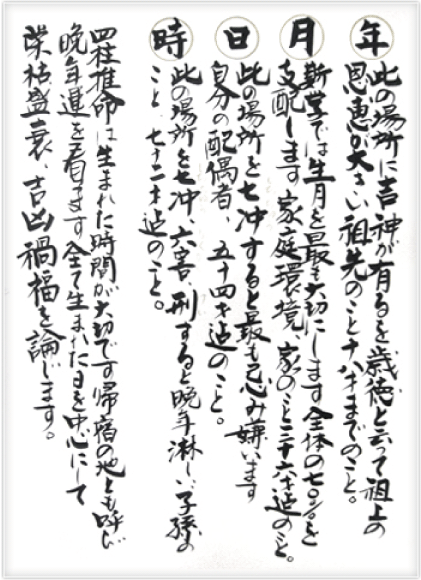 年
此の場所に吉神が有るを歳徳と云って祖上の
恩恵が大きい祖先のこと十八才までのこと。
月
斯学では生月を最も大切にします全体の七〇%を
支配します 家庭環境、家のこと三十六才迄のこと。
日
此の場所を七冲すると最も忌み嫌います
自分の配偶者、五十四才迄のこと。
時
此の場所を七冲 六害、刑すると晩年淋しい子孫の
こと 七十二才迄のこと。
四柱推命は生まれた時間が大切です帰宿の地とも呼び
晩年運を看ます全て生まれた日を中心にして
栄枯盛衰、吉凶禍福を論じます。